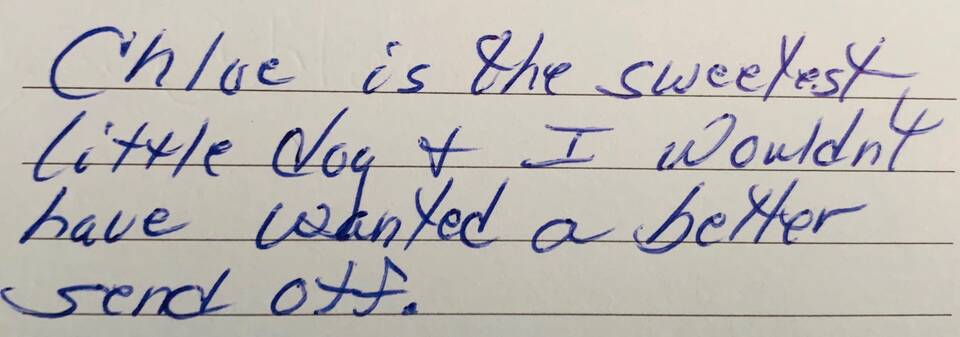 Chloe is the sweetest
little dog + I wouldn't
have wanted a better
send off.